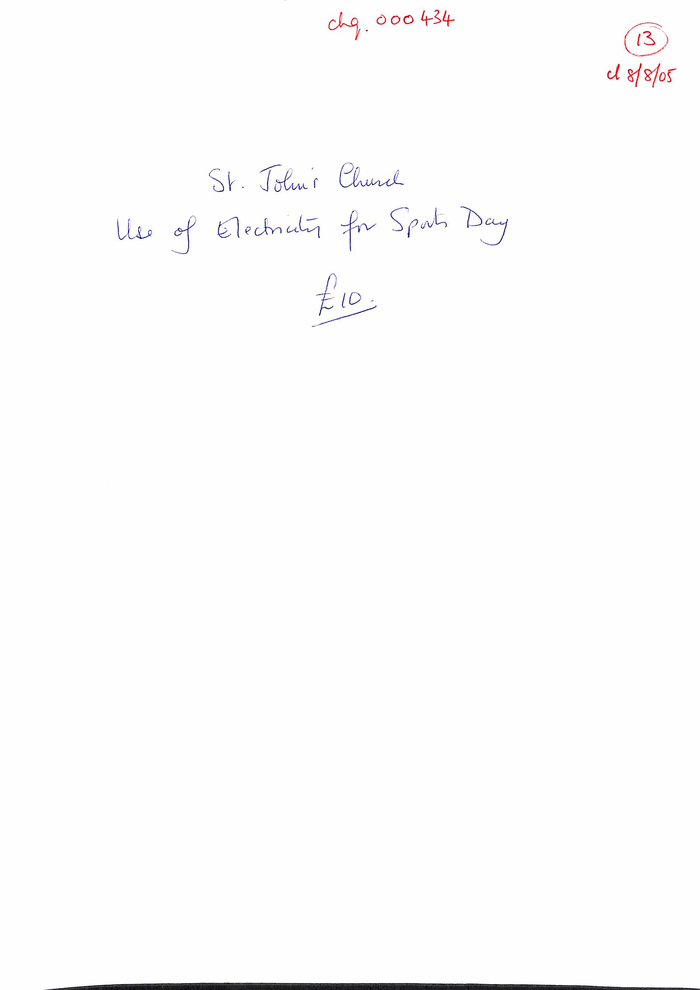 chq. 000434
13
cl 8/8/05
St. John's Church
Use of Electricity for Sports Day
£10.